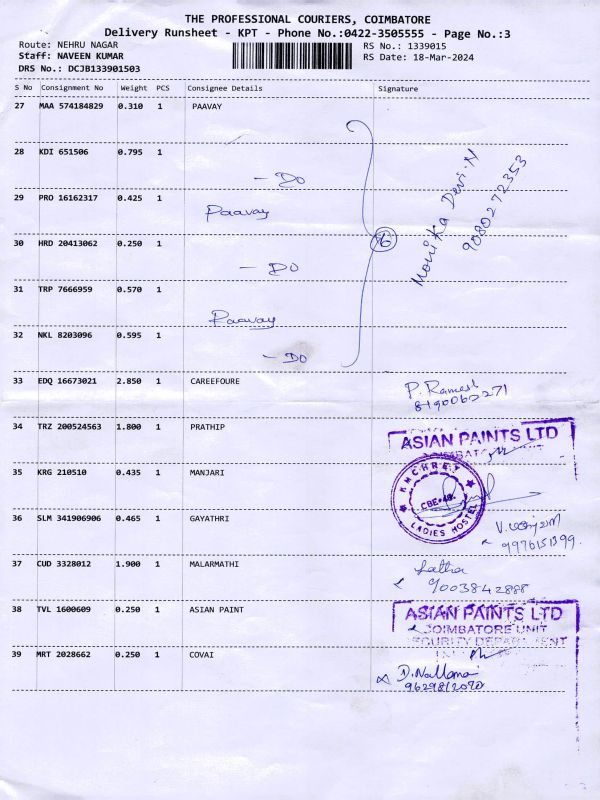 THE PROFESSIONAL COURIERS, COIMBATORE
Delivery Runsheet - KPT - Phone No.:0422-3505555 - Page No.:3
Route: NEHRU NAGAR RS No.: 1339015
Staff: NAVEEN KUMAR RS Date: 18-Mar-2024
DRS No.: DCJB133901503
S No Consignment No Weight PCS Consignee Details Signature
27 MAA 574184829 0.310 1 PAAVAY
28 KDI 651506 0.795 1 - Do
29 PRO 16162317 0.425 1 Paavay
30 HRD 20413062 0.250 1 - Do
31 TRP 7666959 0.570 1 Paavay
32 NKL 8203096 0.595 1 - Do
6
Monika Devi.N
9080272353
33 EDQ 16673021 2.850 1 CAREEFOURE P. Ramesh
34 TRZ 200524563 1.800 1 PRATHIP ASIAN PAINTS LTD
35 KRG 210510 0.435 1 MANJARI KMCHRET CBE-48. LADIES HOSTEL
36 SLM 341906906 0.465 1 GAYATHRI
9976151399.
37 CUD 3328012 1.900 1 MALARMATHI Latha
9003842888
38 TVL 1600609 0.250 1 ASIAN PAINT ASIAN PAINTS LTD
COIMBATORE UNIT
SECURITY DEPARTMENT
39 MRT 2028662 0.250 1 COVAI D. Nallama
9629812070